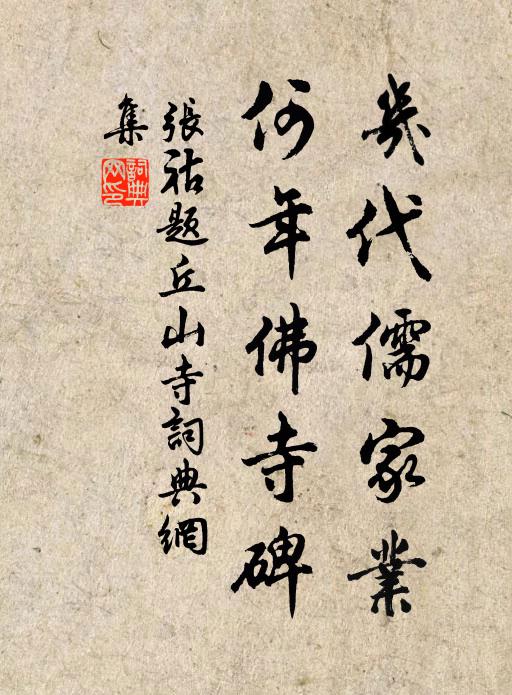 幾代儒家業
何年佛寺碑
張祜題丘山寺詞典網
集
詞典網印